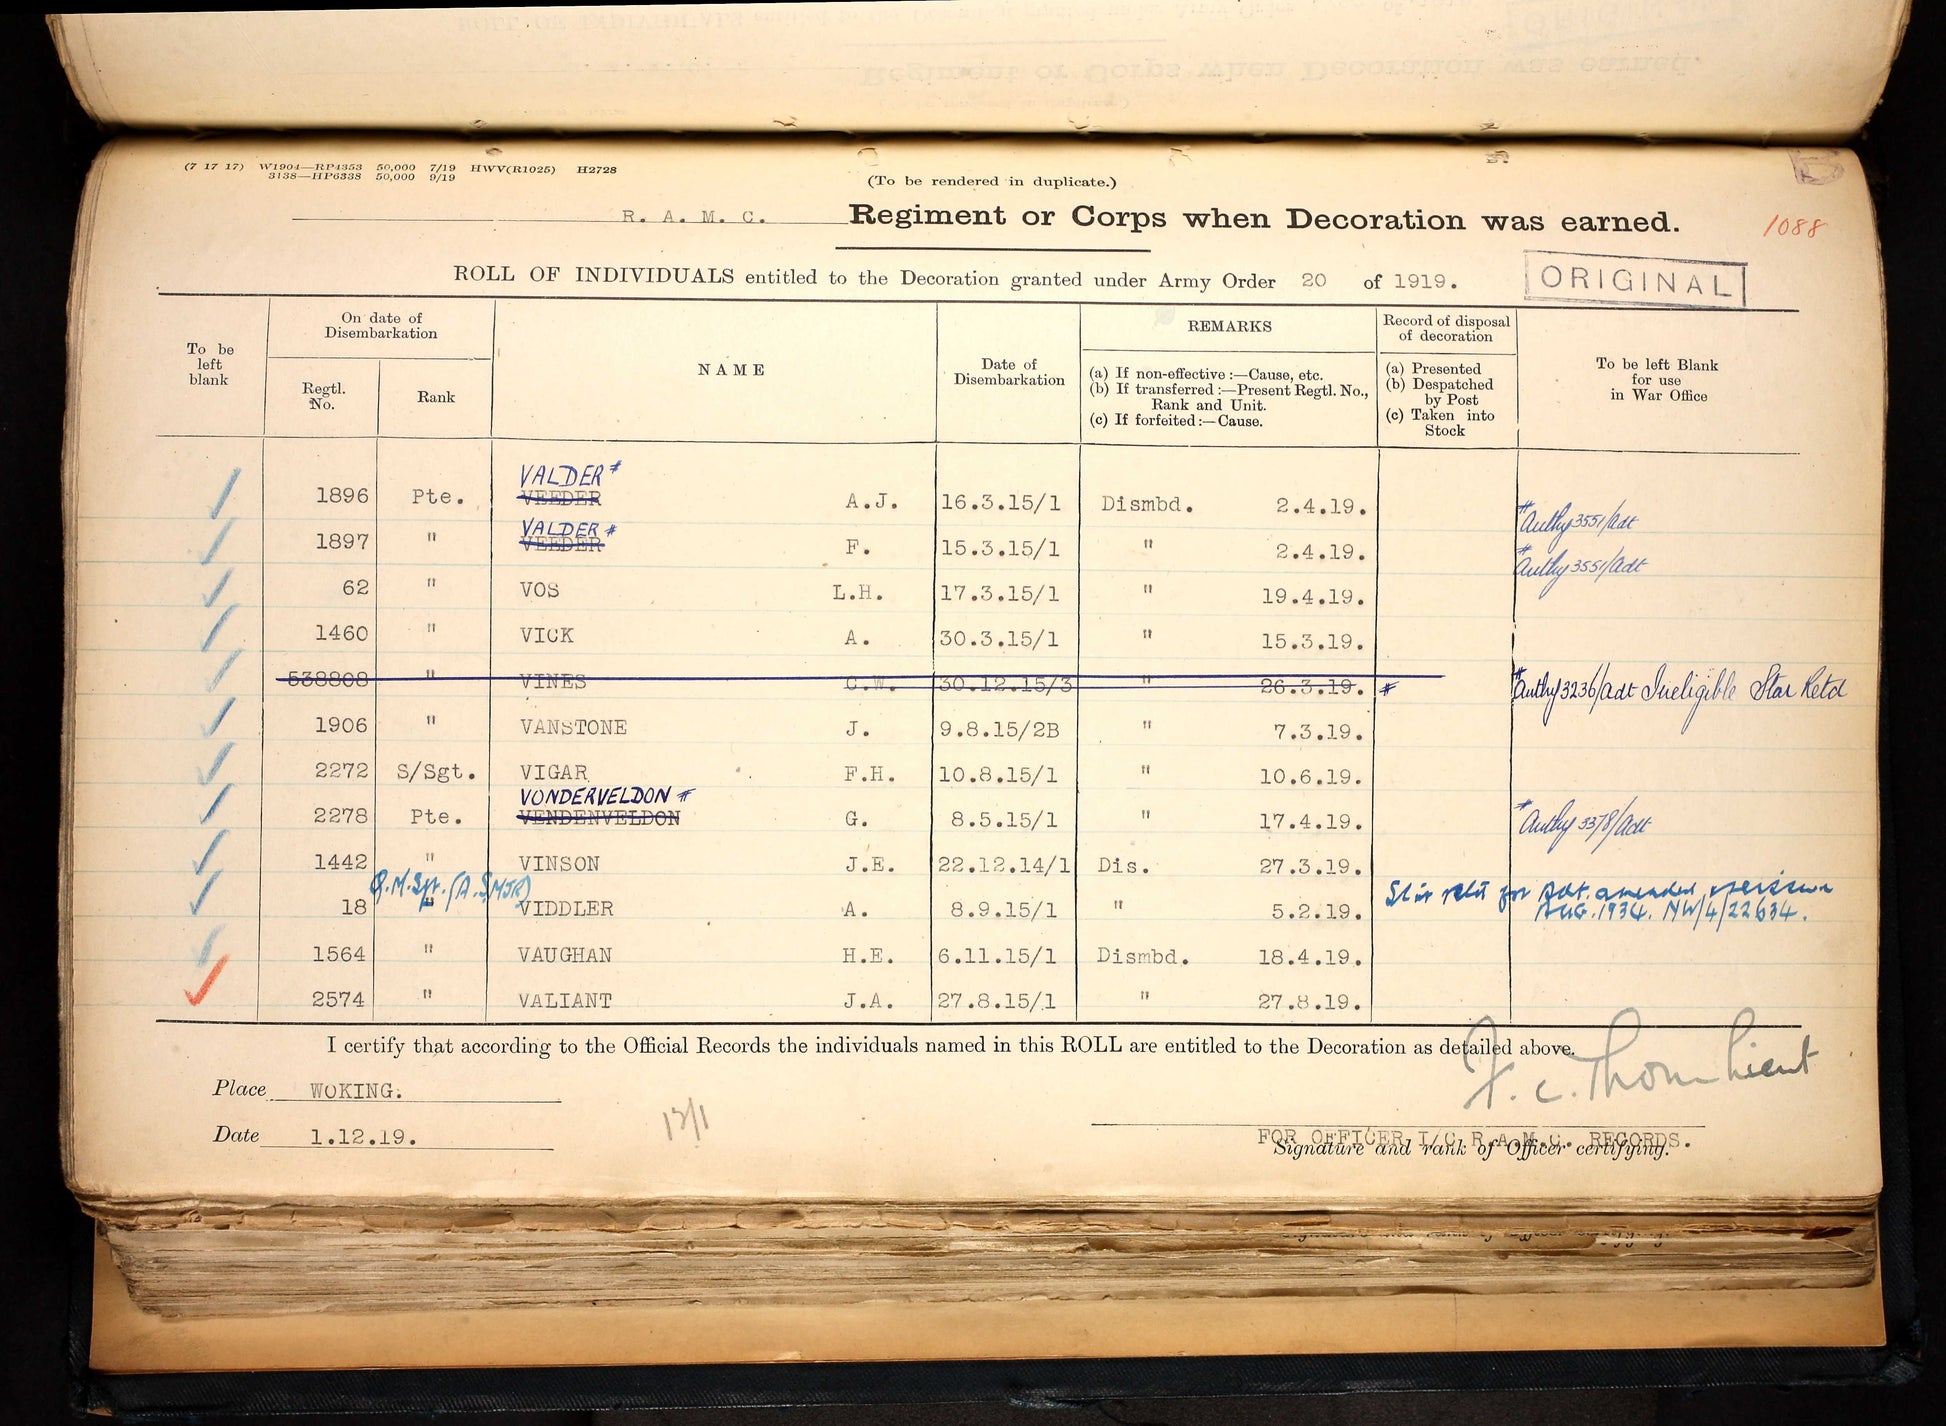 (7 17 17) W1904—RP4353 50,000 7/19 HWV(R1025) H2728
3138—HP6338 50,000 9/19
(To be rendered in duplicate.)
R. A. M. C. Regiment or Corps when Decoration was earned.
1088
ROLL OF INDIVIDUALS entitled to the Decoration granted under Army Order 20 of 1919.
ORIGINAL
To be left blank
On date of Disembarkation
Regtl. No.
Rank
NAME
Date of Disembarkation
REMARKS
(a) If non-effective :—Cause, etc.
(b) If transferred :—Present Regtl. No., Rank and Unit.
(c) If forfeited :—Cause.
Record of disposal of decoration
(a) Presented
(b) Despatched by Post
(c) Taken into Stock
To be left Blank for use in War Office
VALDER #
1896 Pte. VEEDER A.J. 16.3.15/1 Dismbd. 2.4.19. # Authy 3551/Adt
VALDER #
1897 " VEEDER F. 15.3.15/1 " 2.4.19. # Authy 3551/Adt
62 " VOS L.H. 17.3.15/1 " 19.4.19.
1460 " VICK A. 30.3.15/1 " 15.3.19.
538808 " VINES C.W. 30.12.15/3 " 26.3.19. # # Authy 3236/Adt Ineligible Star Retd
1906 " VANSTONE J. 9.8.15/2B " 7.3.19.
2272 S/Sgt. VIGAR F.H. 10.8.15/1 " 10.6.19.
VONDERVELDON #
2278 Pte. VENDENVELDON G. 8.5.15/1 " 17.4.19. # Authy 3378/Adt
1442 " VINSON J.E. 22.12.14/1 Dis. 27.3.19.
Q.M.Sgt. (A.SMJR)
18 " VIDDLER A. 8.9.15/1 " 5.2.19. for amended
AUG. 1934. NW/4/22634.
1564 " VAUGHAN H.E. 6.11.15/1 Dismbd. 18.4.19.
2574 " VALIANT J.A. 27.8.15/1 " 27.8.19.
I certify that according to the Official Records the individuals named in this ROLL are entitled to the Decoration as detailed above.
Place WOKING.
Date 1.12.19.
F. C. Thom Lieut
FOR OFFICER I/C R.A.M.C. RECORDS.
Signature and rank of Officer certifying.